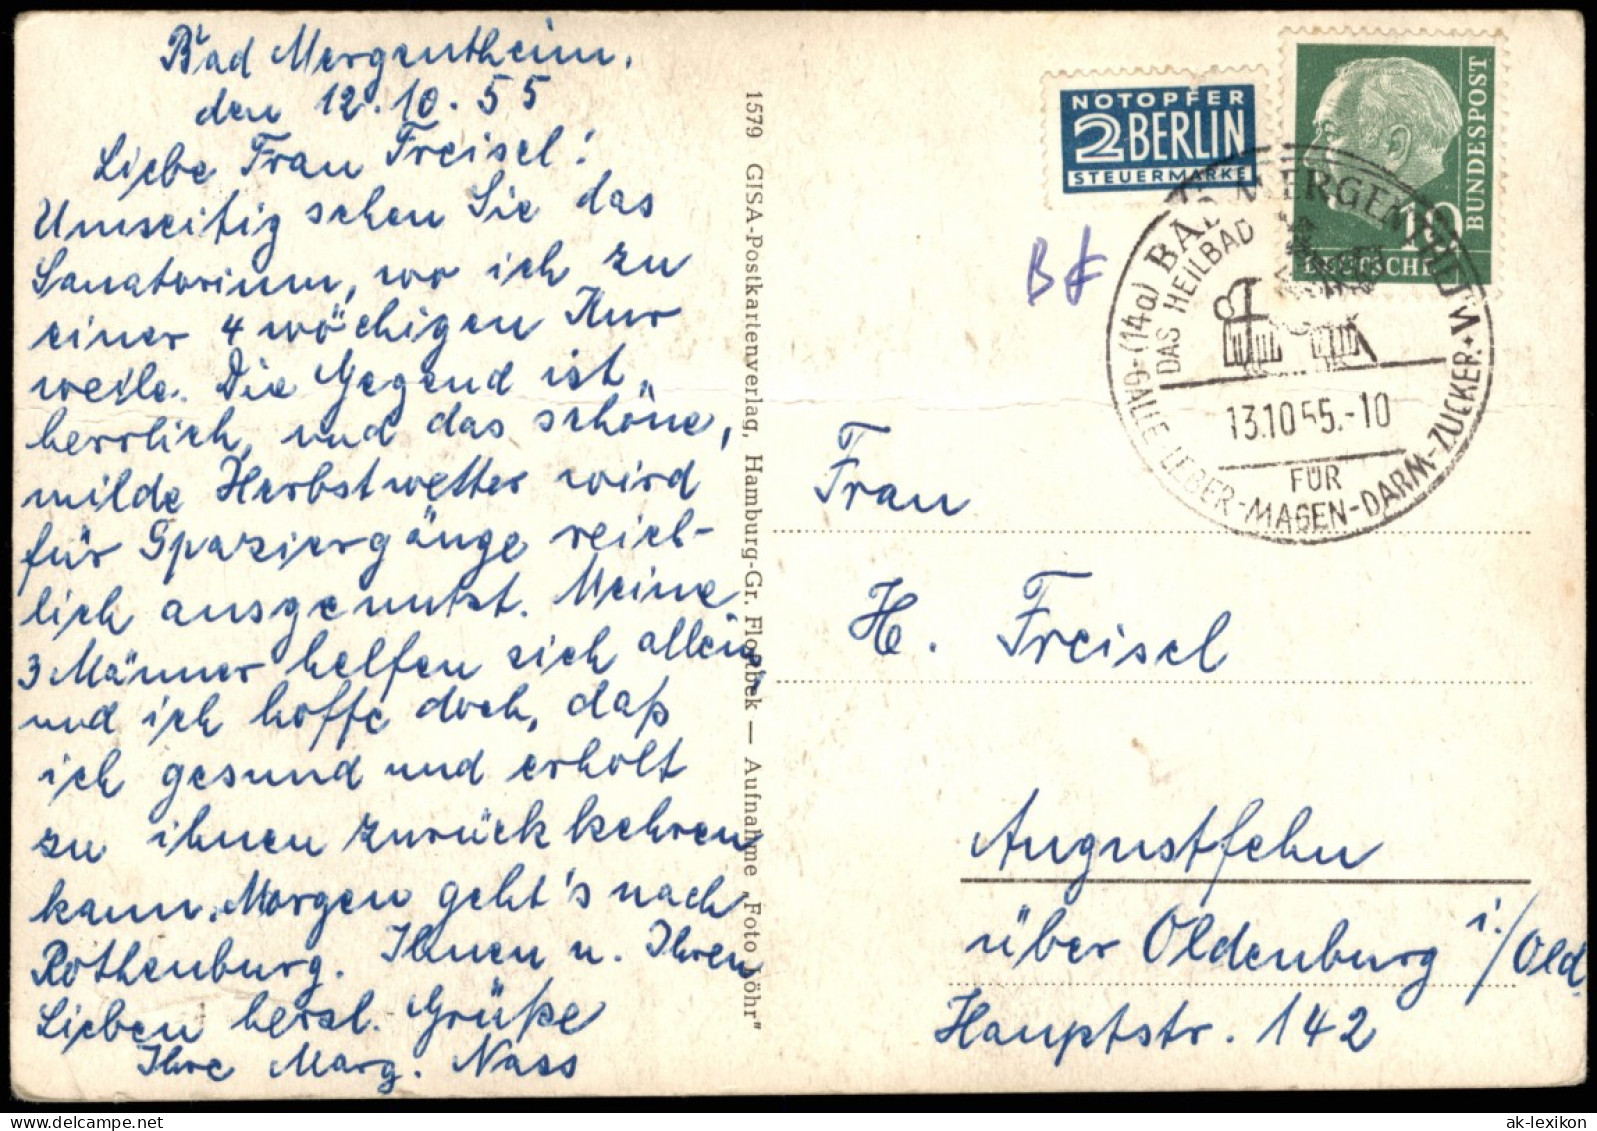 Bad Mergentheim,
den 12.10.55
Liebe Frau Freisel!
Umseitig sehen Sie das
Sanatorium, wo ich zu
einer 4 wöchigen Kur
weile. Die Gegend ist
herrlich, und das schöne,
milde Herbstwetter wird
für Spaziergänge reich-
lich ausgenutzt. Meine
3 Männer helfen sich allein,
und ich hoffe doch, daß
ich gesund und erholt
zu ihnen zurück kehren
kann. Morgen geht's nach
Rothenburg. Ihnen u. Ihren
Lieben herzl. Grüße
Ihre Marg. Nass
1579 GISA-Postkartenverlag, Hamburg-Gr. Flottbek — Aufnahme „Foto Löhr"
NOTOPFER
2 BERLIN
STEUERMARKE
DEUTSCHE
BUNDESPOST
10
(14a) BAD MERGENTHEIM
DAS HEILBAD
13.10.55.-10
FÜR
GALLE-LEBER-MAGEN-DARM-ZUCKER
Frau
H. Freisel
Augustfehn
über Oldenburg i./Old.
Hauptstr. 142
ak-lexikon